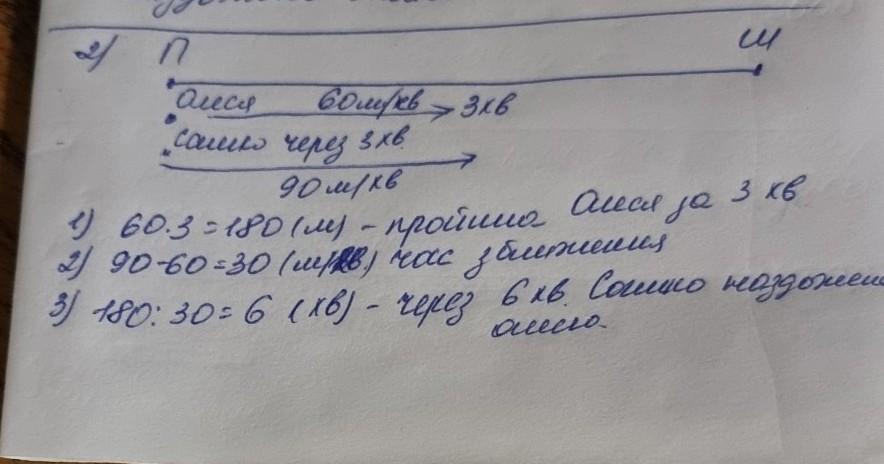 2) П Ш
Олеся 60м/хв 3хв
Сашко через 3хв.
90м/хв
1) 60·3=180(м) - пройшла Олеся за 3 хв
2) 90-60=30 (м/хв) час зближення
3) 180:30=6 (хв) - через 6 хв. Сашко наздожене
Олесю.